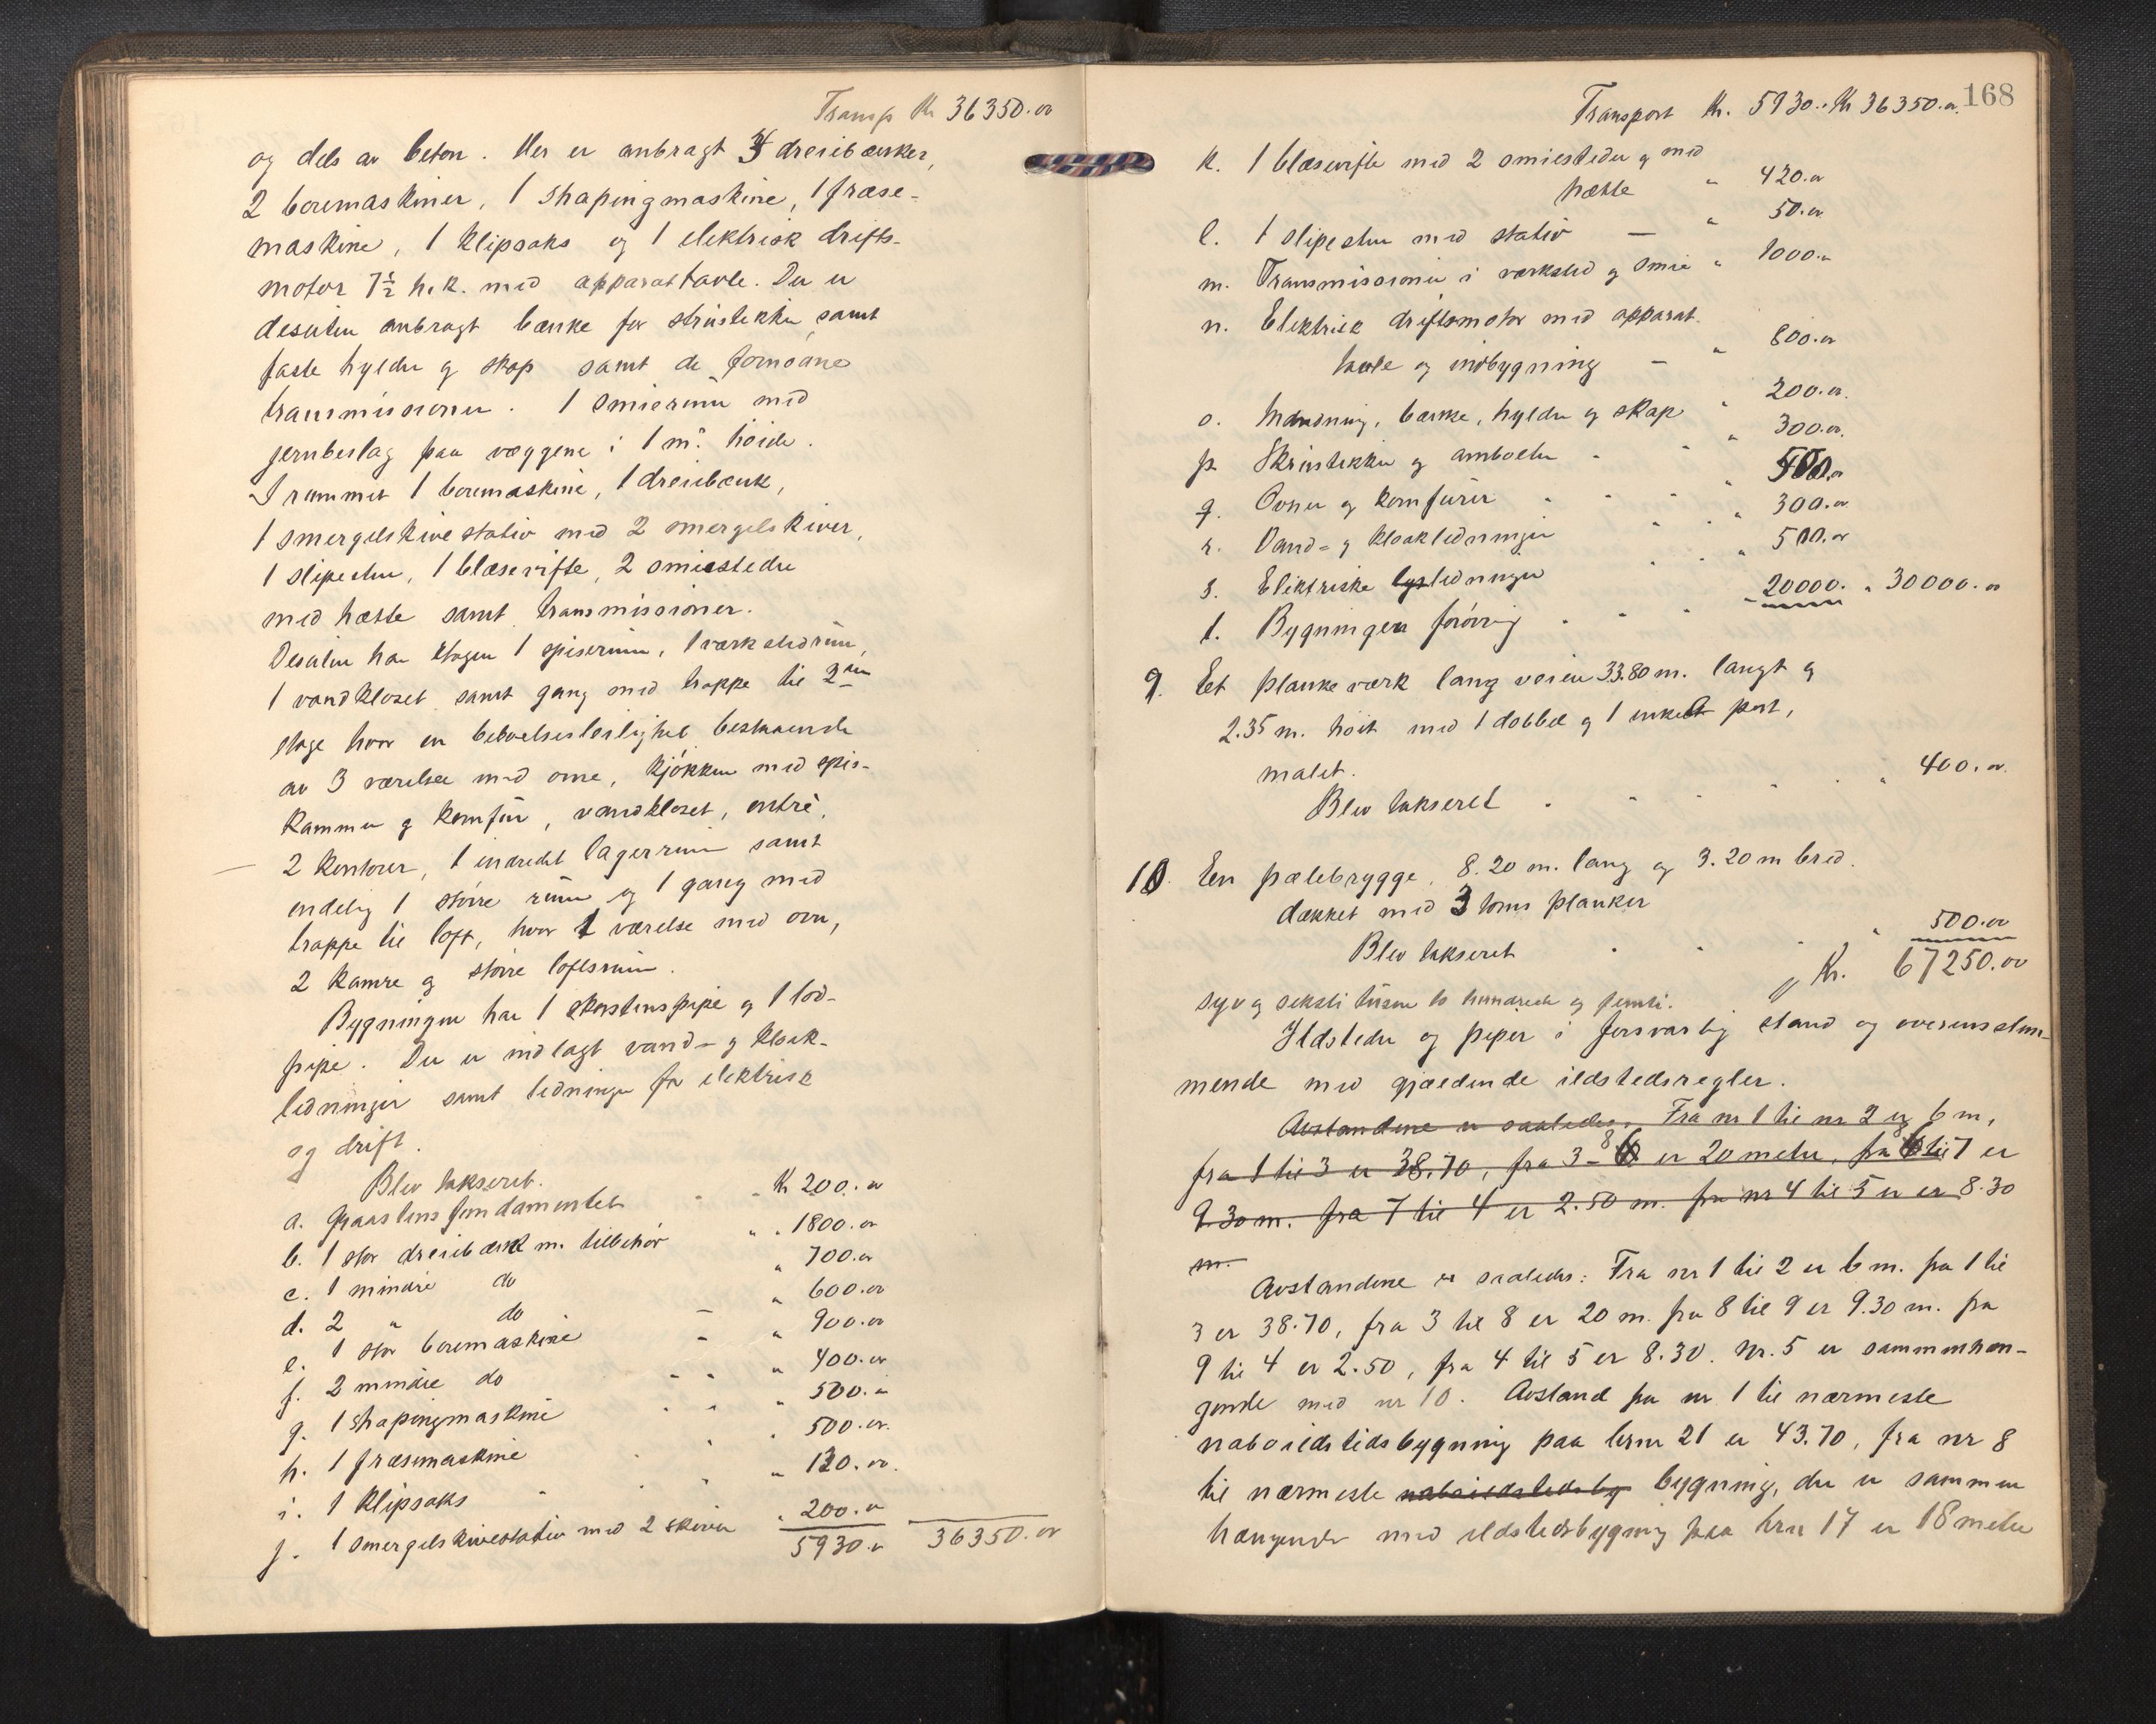 Transp Kr 36350.00
og dels av beton. Her er anbragt 4 dreiebænker,
2 boremaskiner, 1 shapingmaskine, 1 fræse-
maskine, 1 klipsaks og 1 elektrisk drifts-
motor 7½ h.k. med apparattavle. Der er
desuten anbragt bænke for skrustikker samt
faste hylder og skap samt de fornødne
transmissioner. 1 smierum med
jernbeslag paa væggene i 1 m. høide.
I rummet 1 boremaskine, 1 dreiebænk,
1 smergelskivestativ med 2 smergelskiver,
1 slipesten, 1 blæsevifte, 2 smiesteder
med hætte samt transmissioner.
Desuten har etagen 1 spiserum, 1 verkstedrum,
1 vandkloset samt gang med trappe til 2den
etage hvor en beboelsesleilighet bestaaende
av 3 værelser med ovne, kjøkken med spis-
kammer og komfur, vandkloset, entrè,
2 kontorer, 1 indredet lagerrum samt
endelig 1 større rum og 1 gang med
trappe til loft, hvor 1 værelse med ovn,
2 kamre og større loftsrum.
Bygningen har 1 skorstenspipe og 1 lod-
pipe. Der er indlagt vand- og kloak-
ledninger samt ledninger for elektrisk
og drift.
Blev takseret.
a. Graastensfundamentet " " Kr 200.00
b. 1 stor dreiebænk m. tilbehør " " 1800.00
c. 1 mindre do " 700.00
d. 2 " do " 600.00
e. 1 stor boremaskine - " 900.00
f. 2 mindre do " " " 400.00
g. 1 shapingmaskine " " " 500.00
h. 1 fræsemaskine " " " 500.00
i. 1 klipsaks " " " 130.00
j. 1 smergelskivestativ med 2 skiver " 200.00
5930.00 36350.00
168
Transport Kr. 5930.. Kr 36350.00
k. 1 blæsevifte med 2 smiesteder og med
hætte " 420.00
l. 1 slipesten med stativ — " 50.00
m. Transmissioner i verksted og smie " 1000.00
n. Elektrisk driftsmotor med apparat-
tavle og indbygning — " 800.00
o. Indredning, bænke, hylder og skap " 200.00
p. Skrustikker og ambolter " " " 300.00
q. Ovner og komfurer " " " " 500.00
r. Vand- og kloakledninger " " " 300.00
s. Elektriske lysledninger " " " 500.00
t. Bygningen forøvrig " " " 20000. " 30000.00
9. Et plankeværk langs veien 33.80 m. langt og
2.35 m. høit med 1 dobbel og 1 enkelt port,
malet.
Blev takseret " " " " " 400.00
10. En pælebrygge, 8.20 m. lang og 3.20 m bred.
dækket med 3 toms planker
Blev takseret " " " " 500.00
Kr. 67250.00
syv og seksti tusen to hundrede og femti.
Ildsteder og piper i forsvarlig stand og overensstem-
mende med gjældende ildstedsregler.
Avstandene er saaledes. Fra nr 1 til nr 2 er 6 m,
fra 1 til 3 er 38.70, fra 3 - 8 er 20 meter, fra 8 til 7 er
9.30 m. fra 7 til 4 er 2.50 m. fra nr 4 til 5 er er 8.30
m.
Avstandene er saaledes: Fra nr 1 til 2 er 6 m. fra 1 til
3 er 38.70, fra 3 til 8 er 20 m. fra 8 til 9 er 9.30 m. fra
9 til 4 er 2.50, fra 4 til 5 er 8.30. Nr. 5 er sammenhæn-
gende med nr 10. Avstand fra nr 1 til nærmeste
naboildstedsbygning paa brnr 21 er 43.70, fra nr 8
til nærmeste naboildstedsby bygning, der er sammen
hængende med ildstedsbygning paa brnr 17 er 18 meter